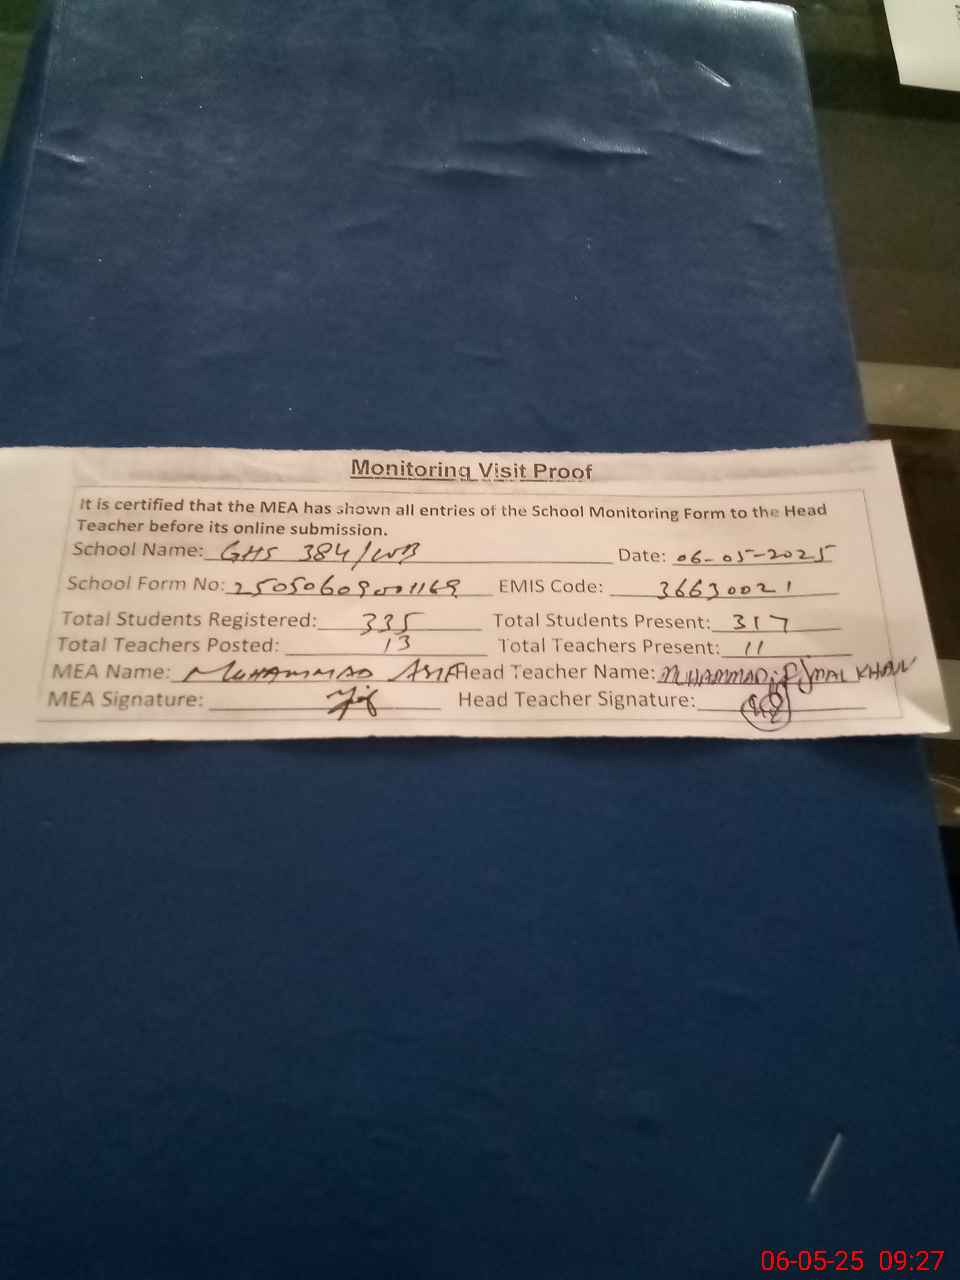 Monitoring Visit Proof
It is certified that the MEA has shown all entries of the School Monitoring Form to the Head
Teacher before its online submission.
School Name: GHS 384/WB Date: 06-05-2025
School Form No: 25050609001169 EMIS Code: 36630021
Total Students Registered: 335 Total Students Present: 317
Total Teachers Posted: 13 Total Teachers Present: 11
MEA Name: MUHAMMAD ASIF Head Teacher Name: MUHAMMAD AJMAL KHAN
MEA Signature: Head Teacher Signature:
06-05-25 09:27